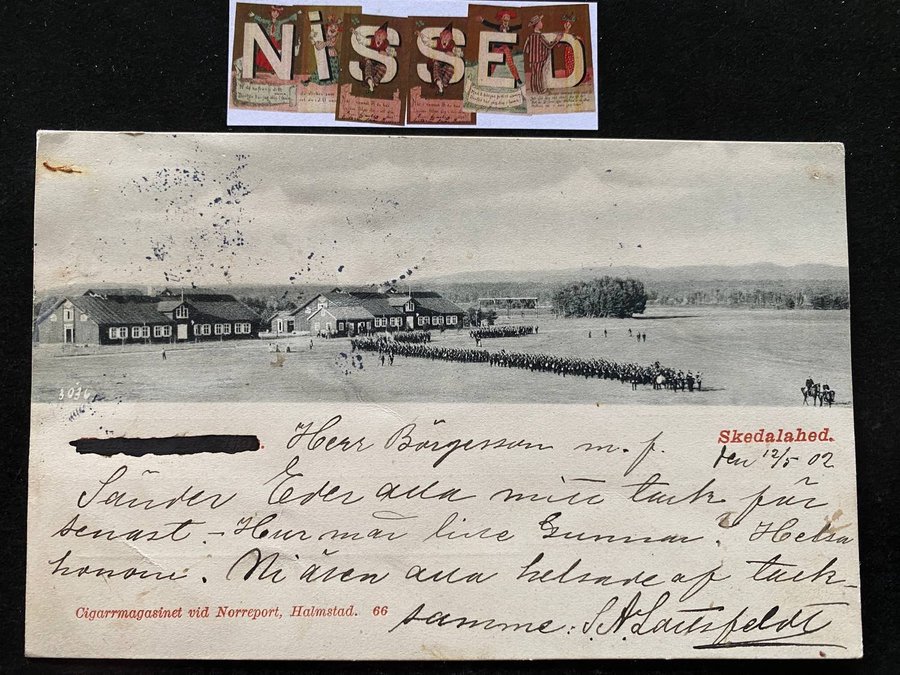 NiSSED
3036
Skedalahed.
Herr Börgesson m. f. den 12/5 02
Sänder Eder alla mitt tack för
senast. - Hur mår lille Gunnar? Helsa
honom. Ni ären alla helsade af tack-
Cigarrmagasinet vid Norreport, Halmstad. 66
samme: S.A.